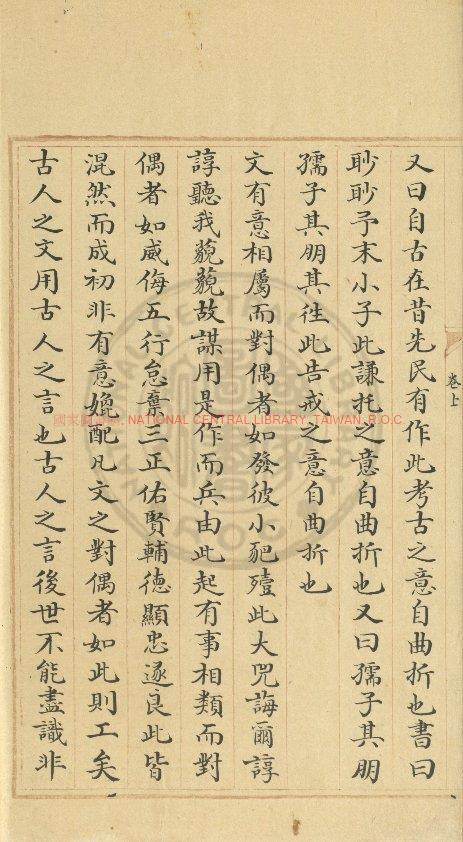 又曰自古在昔先民有作此考古之意自曲折也書曰
眇眇予末小子此謙托之意自曲折也又曰孺子其朋
孺子其朋其徃此告戒之意自曲折也
文有意相屬而對偶者如發彼小豝殪此大兕誨爾諄
諄聽我藐藐故謀用是作而兵由此起有事相類而對
偶者如威侮五行怠棄三正佑賢輔德顯忠遂良此皆
混然而成初非有意媲配凡文之對偶者如此則工矣
古人之文用古人之言也古人之言後世不能盡識非
卷上
國家圖書館, NATIONAL CENTRAL LIBRARY, TAIWAN, R.O.C.